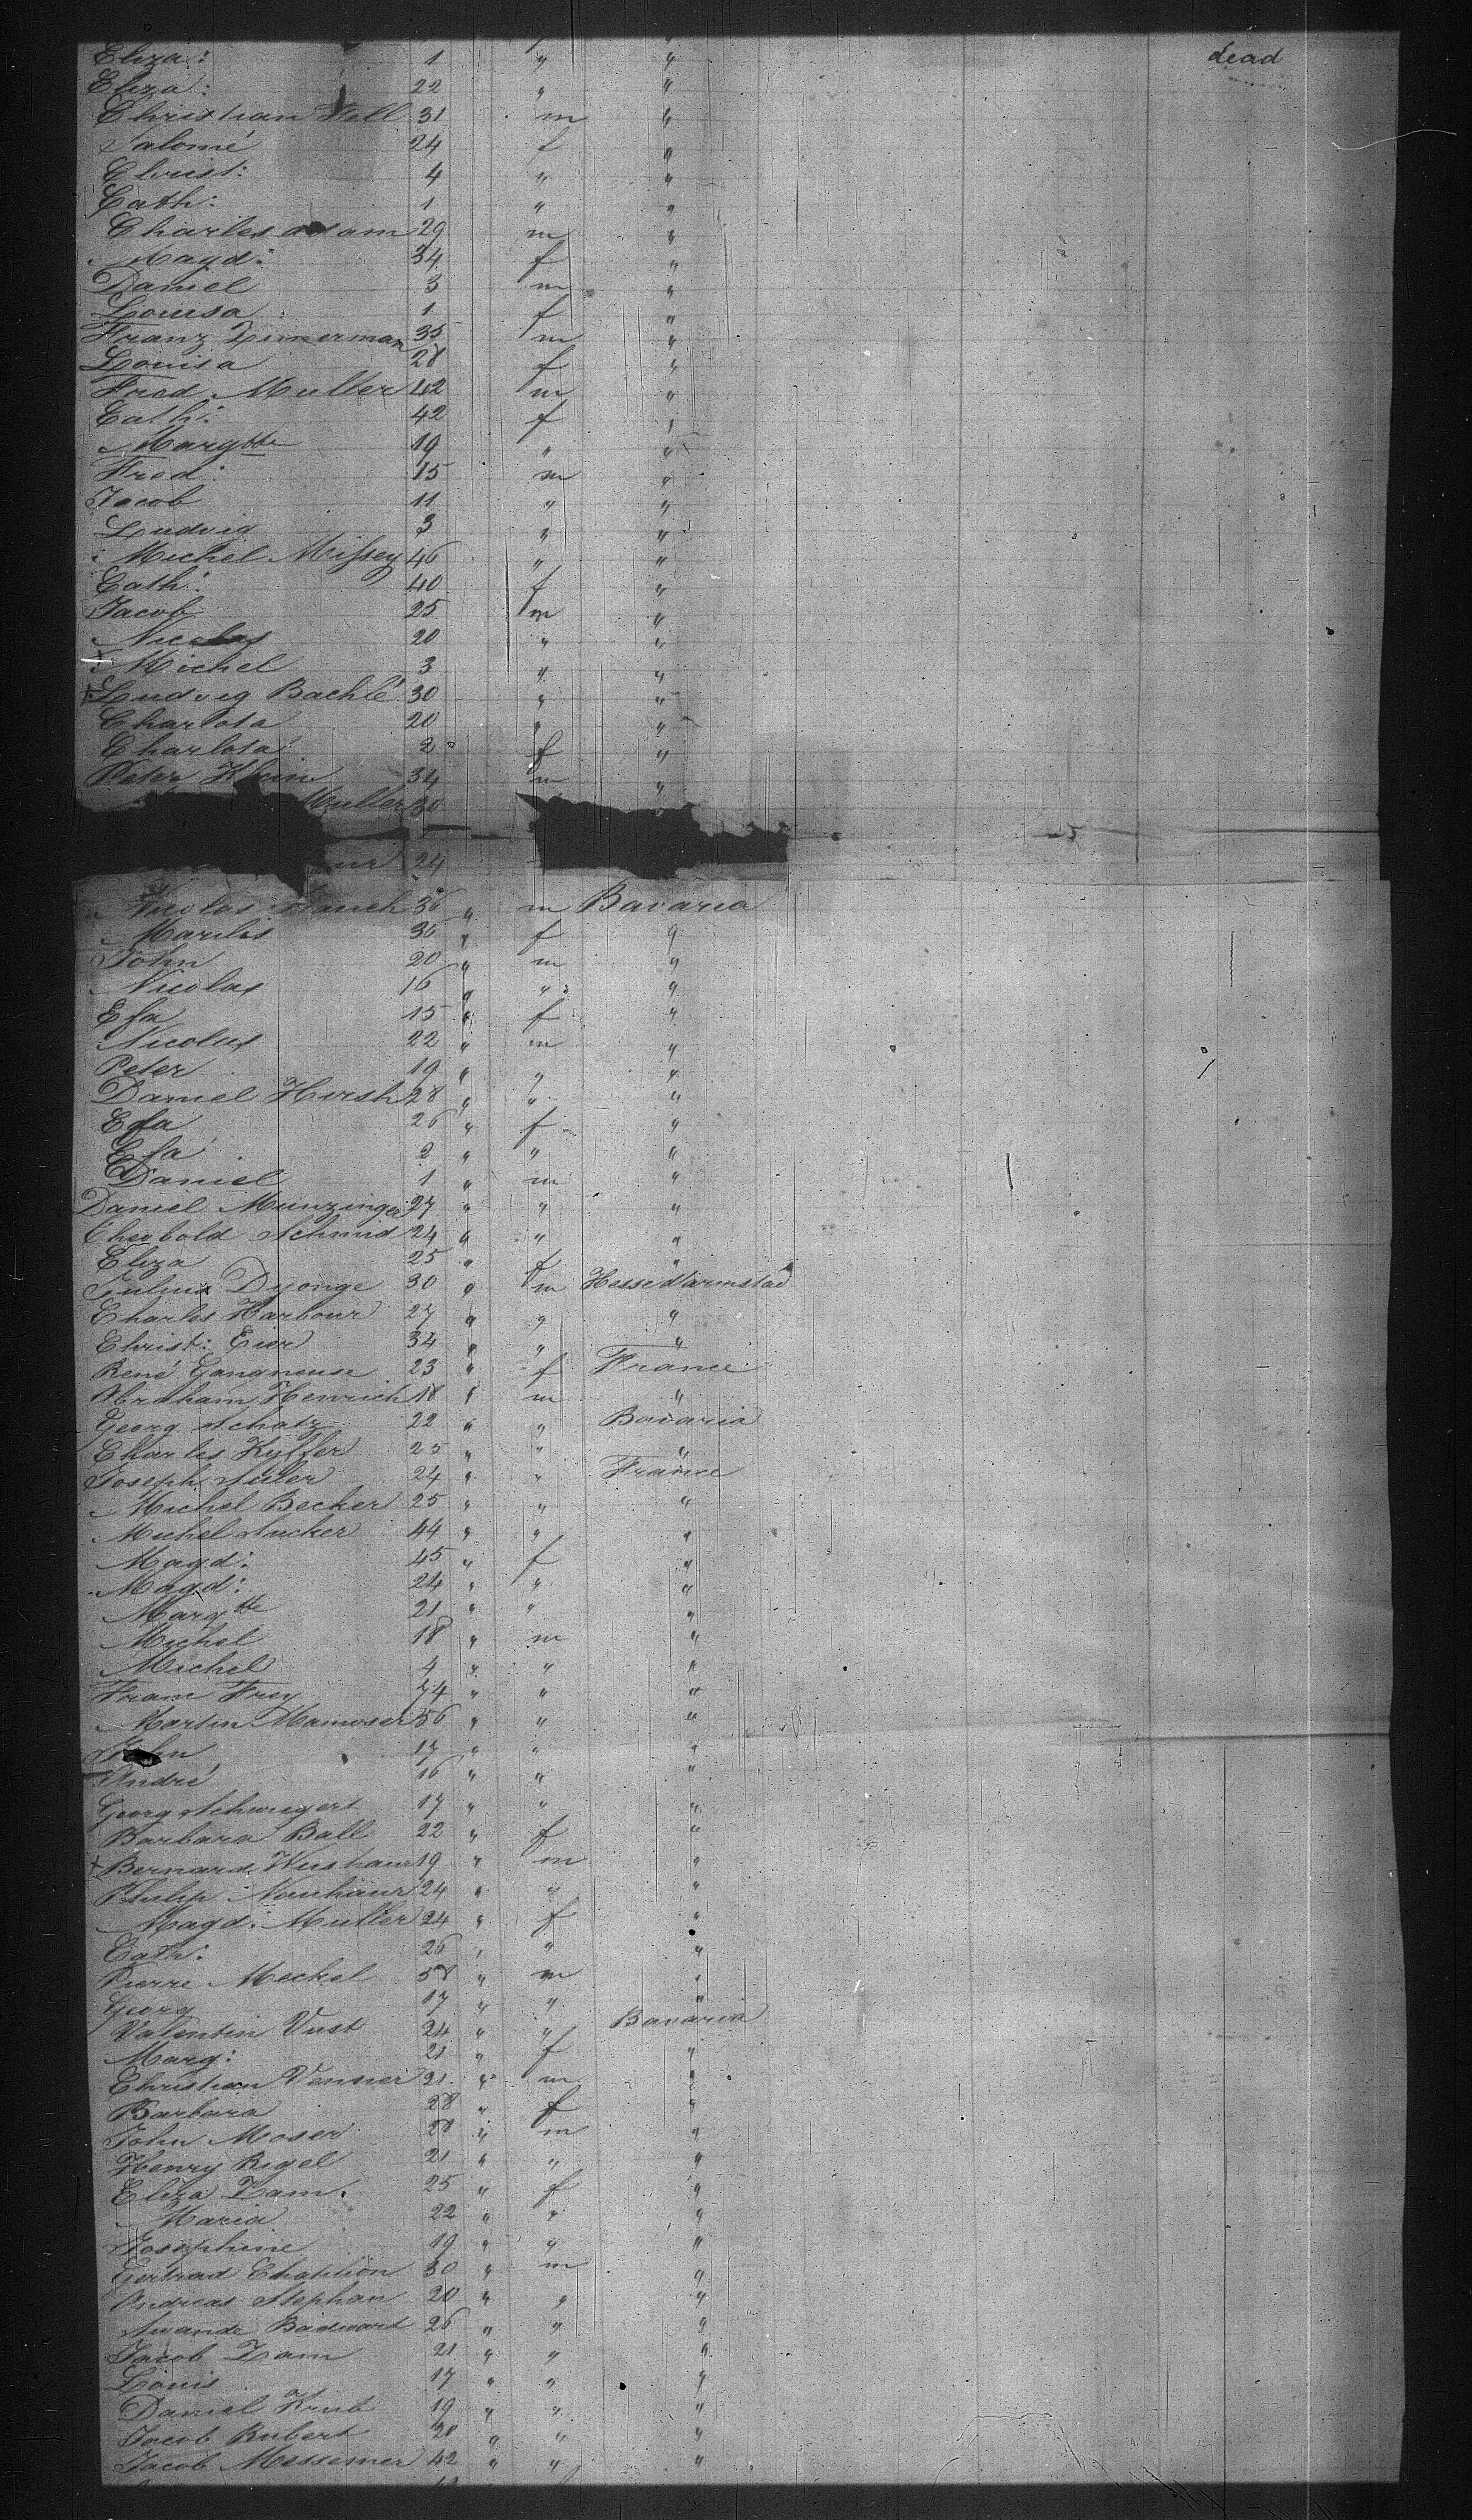 Eliza: 1 " " dead
Eliza: 22 " "
Christian Fell 31 m "
Salomé 24 f "
Christ: 4 " "
Cath: 1 " "
Charles Adam 29 m "
Magd: 34 f "
Daniel 3 m "
Louisa 1 f "
Franz Zimerman 35 m "
Louisa 28 f "
Fred. Muller 42 m "
Cath: 42 f "
Margtte 19 " "
Fred: 15 m "
Jacob 11 " "
Ludvig 3 " "
Michel Missey 46 " "
Cath: 40 f "
Jacob 25 m "
Nicolas 20 " "
Michel 3 " "
Ludvig Bachlé 30 " "
Charlota 20 " "
Charlota 2 f "
Peter Klein 34 m "
Muller 30
24
Nicolas 36 " m Bavaria
Marilis 36 " f "
John 20 " m "
Nicolas 16 " " "
Efa 15 " f "
Nicolas 22 " m "
Peter 19 " " "
Daniel Hirsh 28 " " "
Efa 26 " f "
Efa 2 " " "
Daniel 1 " m "
Daniel Munzinger 27 " " "
Theobold Schmid 24 " " "
Eliza 25 " f "
Julius Dyonge 30 " m Hesse Darmstad
Charles Harbour 27 " " "
Christ: 34 " " "
René Gangneuse 23 " f France
Abraham Henrich 18 " m "
Georg Schatz 22 " " Bavaria
Charles Kyffer 25 " " "
Joseph 24 " " France
Michel Becker 25 " " "
Michel Sucker 44 " " "
Magd: 45 " f "
Magd: 24 " " "
Margtte 21 " " "
Michel 18 " m "
Michel 4 " " "
Frey 74 " " "
Martin 56 " " "
John 17 " " "
André 16 " " "
Georg Schweigert 17 " " "
Barbara Ball 22 " f "
Bernard 19 " m "
Philip 24 " " "
Magd: Muller 24 " f "
Cath: 26 " " "
Pierre Meckel 58 " m "
Georg 17 " " "
Valentin Vust 24 " " Bavaria
Marg: 21 " f "
Christian 21 " m "
Barbara 28 " f "
John Moser 28 " m "
Henry Rigel 21 " " "
Eliza Zam. 25 " f "
Maria 22 " " "
Josephine 19 " " "
Gertrad 30 " m "
Andreas Stephan 20 " " "
26 " " "
Jacob Zam 21 " " "
Louis 17 " " "
Daniel Krub 19 " " "
Jacob Rubert 28 " " "
Jacob Messemer 42 " " "